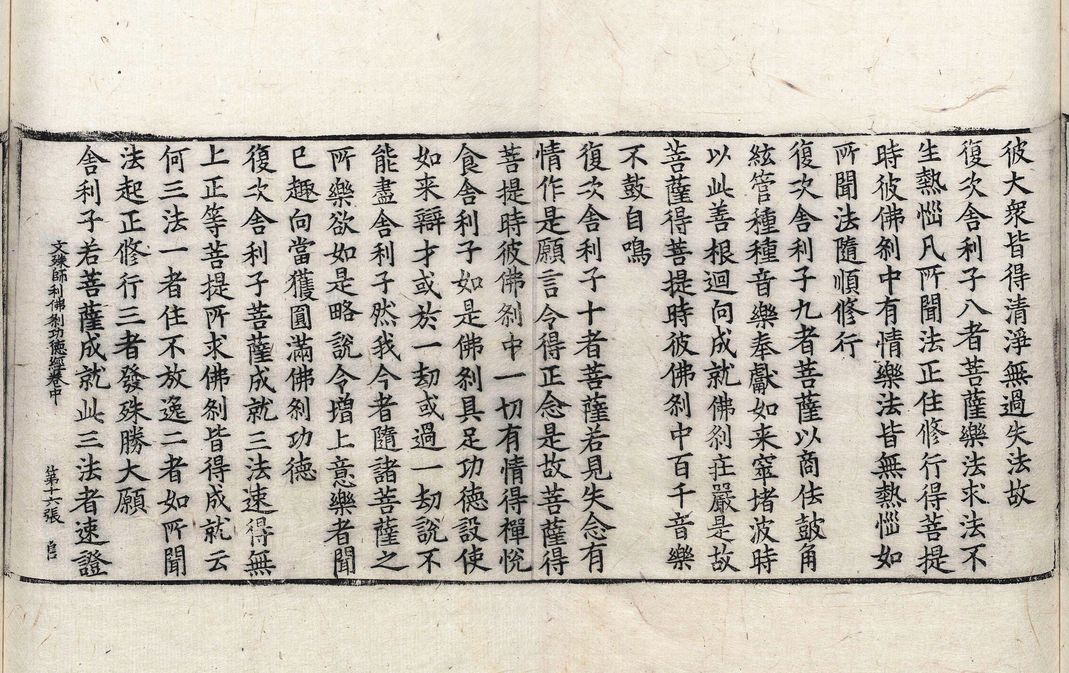 彼大衆皆得清淨無過失法故
復次舍利子八者菩薩樂法求法不
生熱惱凡所聞法正住修行得菩提
時彼佛刹中有情樂法皆無熱惱如
所聞法隨順修行
復次舍利子九者菩薩以商佉鼓角
絃管種種音樂奉獻如来窣堵波時
以此善根迴向成就佛刹莊嚴是故
菩薩得菩提時彼佛刹中百千音樂
不鼓自鳴
復次舍利子十者菩薩若見失念有
情作是願言令得正念是故菩薩得
菩提時彼佛刹中一切有情得禪悅
食舍利子如是佛刹具足功德設使
如来辯才或於一劫或過一劫說不
能盡舍利子然我今者隨諸菩薩之
所樂欲如是略說令增上意樂者聞
已趣向當獲圓滿佛刹功德
復次舍利子菩薩成就三法速得無
上正等菩提所求佛刹皆得成就云
何三法一者住不放逸二者如所聞
法起正修行三者發殊勝大願
舍利子若菩薩成就此三法者速證
文殊師利佛刹功德經卷中 竹 第十六張